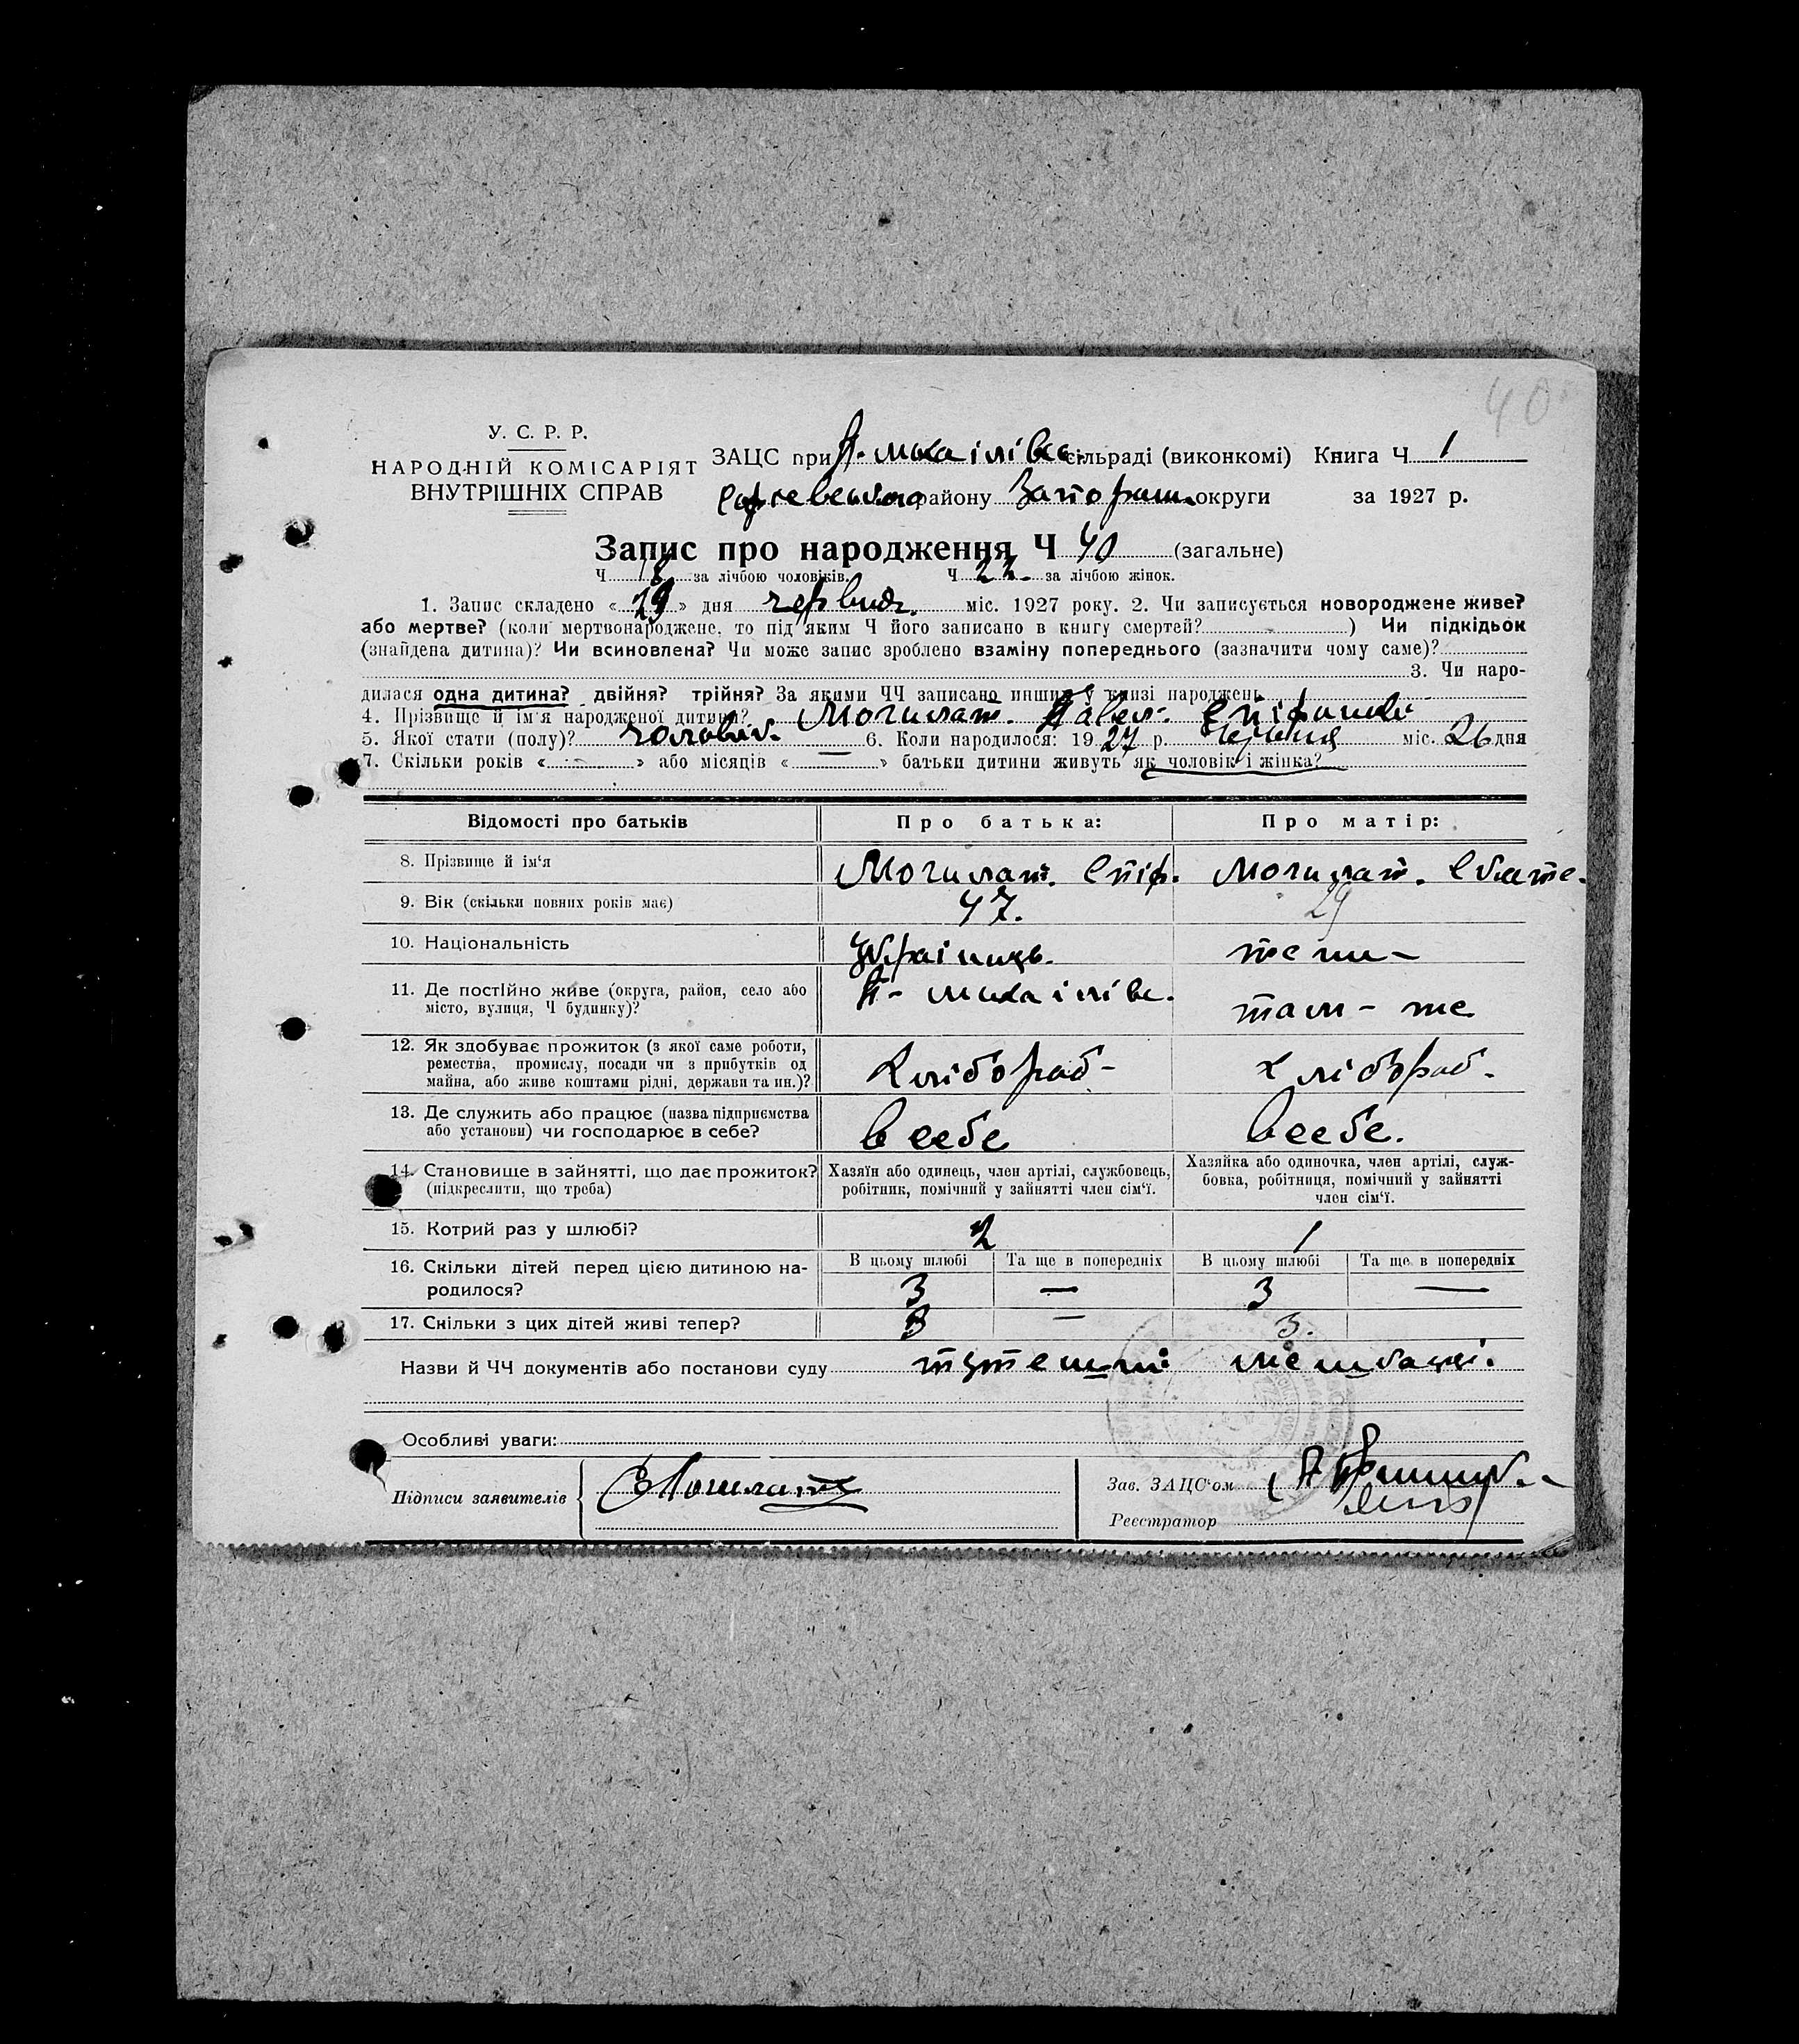 40
У. С. Р. Р.
НАРОДНІЙ КОМІСАРІЯТ
ВНУТРІШНІХ СПРАВ
ЗАЦС при П. Михаілівск. сільраді (виконкомі) Книга Ч. 1
району Запориж. округи за 1927 р.
Запис про народження Ч 40 (загальне)
Ч 18 за лічбою чоловіків. Ч 22 за лічбою жінок.
1. Запис складено « 29 » дня червня міс. 1927 року. 2. Чи записується новороджене живе?
або мертве? (коли мертвонароджене, то під яким Ч його записано в книгу смертей? ) Чи підкідьок
(знайдена дитина)? Чи всиновлена? Чи може запис зроблено взаміну попереднього (зазначити чому саме)?
3. Чи наро-
дилася одна дитина? двійня? трійня? За якими ЧЧ записано инших у книзі народжень
4. Прізвище й ім'я народженої дитини? Могилат. Павел. Епіфанов
5. Якої стати (полу)? чоловіч. 6. Коли народилося: 1927 р. червня міс. 26 дня
7. Скільки років « — » або місяців « — » батьки дитини живуть як чоловік і жінка?
Відомості про батьків Про батька: Про матір:
8. Прізвище й ім'я Могилат. Епіф. Могилат. Екате.
9. Вік (скільки повних років має) 47. 29
10. Національність Украіниць. теш –
11. Де постійно живе (округа, район, село або П- Михаілівк. там - же
місто, вулиця, Ч будинку)?
12. Як здобуває прожиток (з якої саме роботи, Хлібораб- хлібораб-
ремества, промислу, посади чи з прибутків од
майна, або живе коштами рідні, держави та ин.)?
13. Де служить або працює (назва підприємства в себе в себе.
або установи) чи господарює в себе?
14. Становище в зайнятті, що дає прожиток? Хазяїн або одинець, член артілі, службовець, Хазяйка або одиночка, член артілі, служ-
(підкреслити, що треба) робітник, помічний у зайнятті член сім'ї. бовка, робітниця, помічний у зайнятті
член сім'ї.
15. Котрий раз у шлюбі? 2 1
16. Скільки дітей перед цією дитиною на- В цьому шлюбі Та ще в попередніх В цьому шлюбі Та ще в попередніх
родилося? 3 — 3 —
17. Скільки з цих дітей живі тепер? 3 — 3.
Назви й ЧЧ документів або постанови суду тутешні мешканці.
Особливі уваги:
Підписи заявителів ЕМогилат
Зав. ЗАЦС'ом
Реєстратор